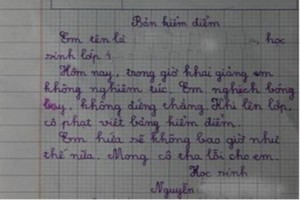 Bản kiểm điểm
Em tên là , học
sinh lớp 4.
Hôm nay, trong giờ khai giảng em
không nghiêm túc. Em nghịch bóng
bay, không đứng thẳng. Khi lên lớp,
cô phạt viết bảng kiểm điểm.
Em hứa sẽ không bao giờ như
thế nữa. Mong cô tha lỗi cho em.
Học sinh
Nguyễn